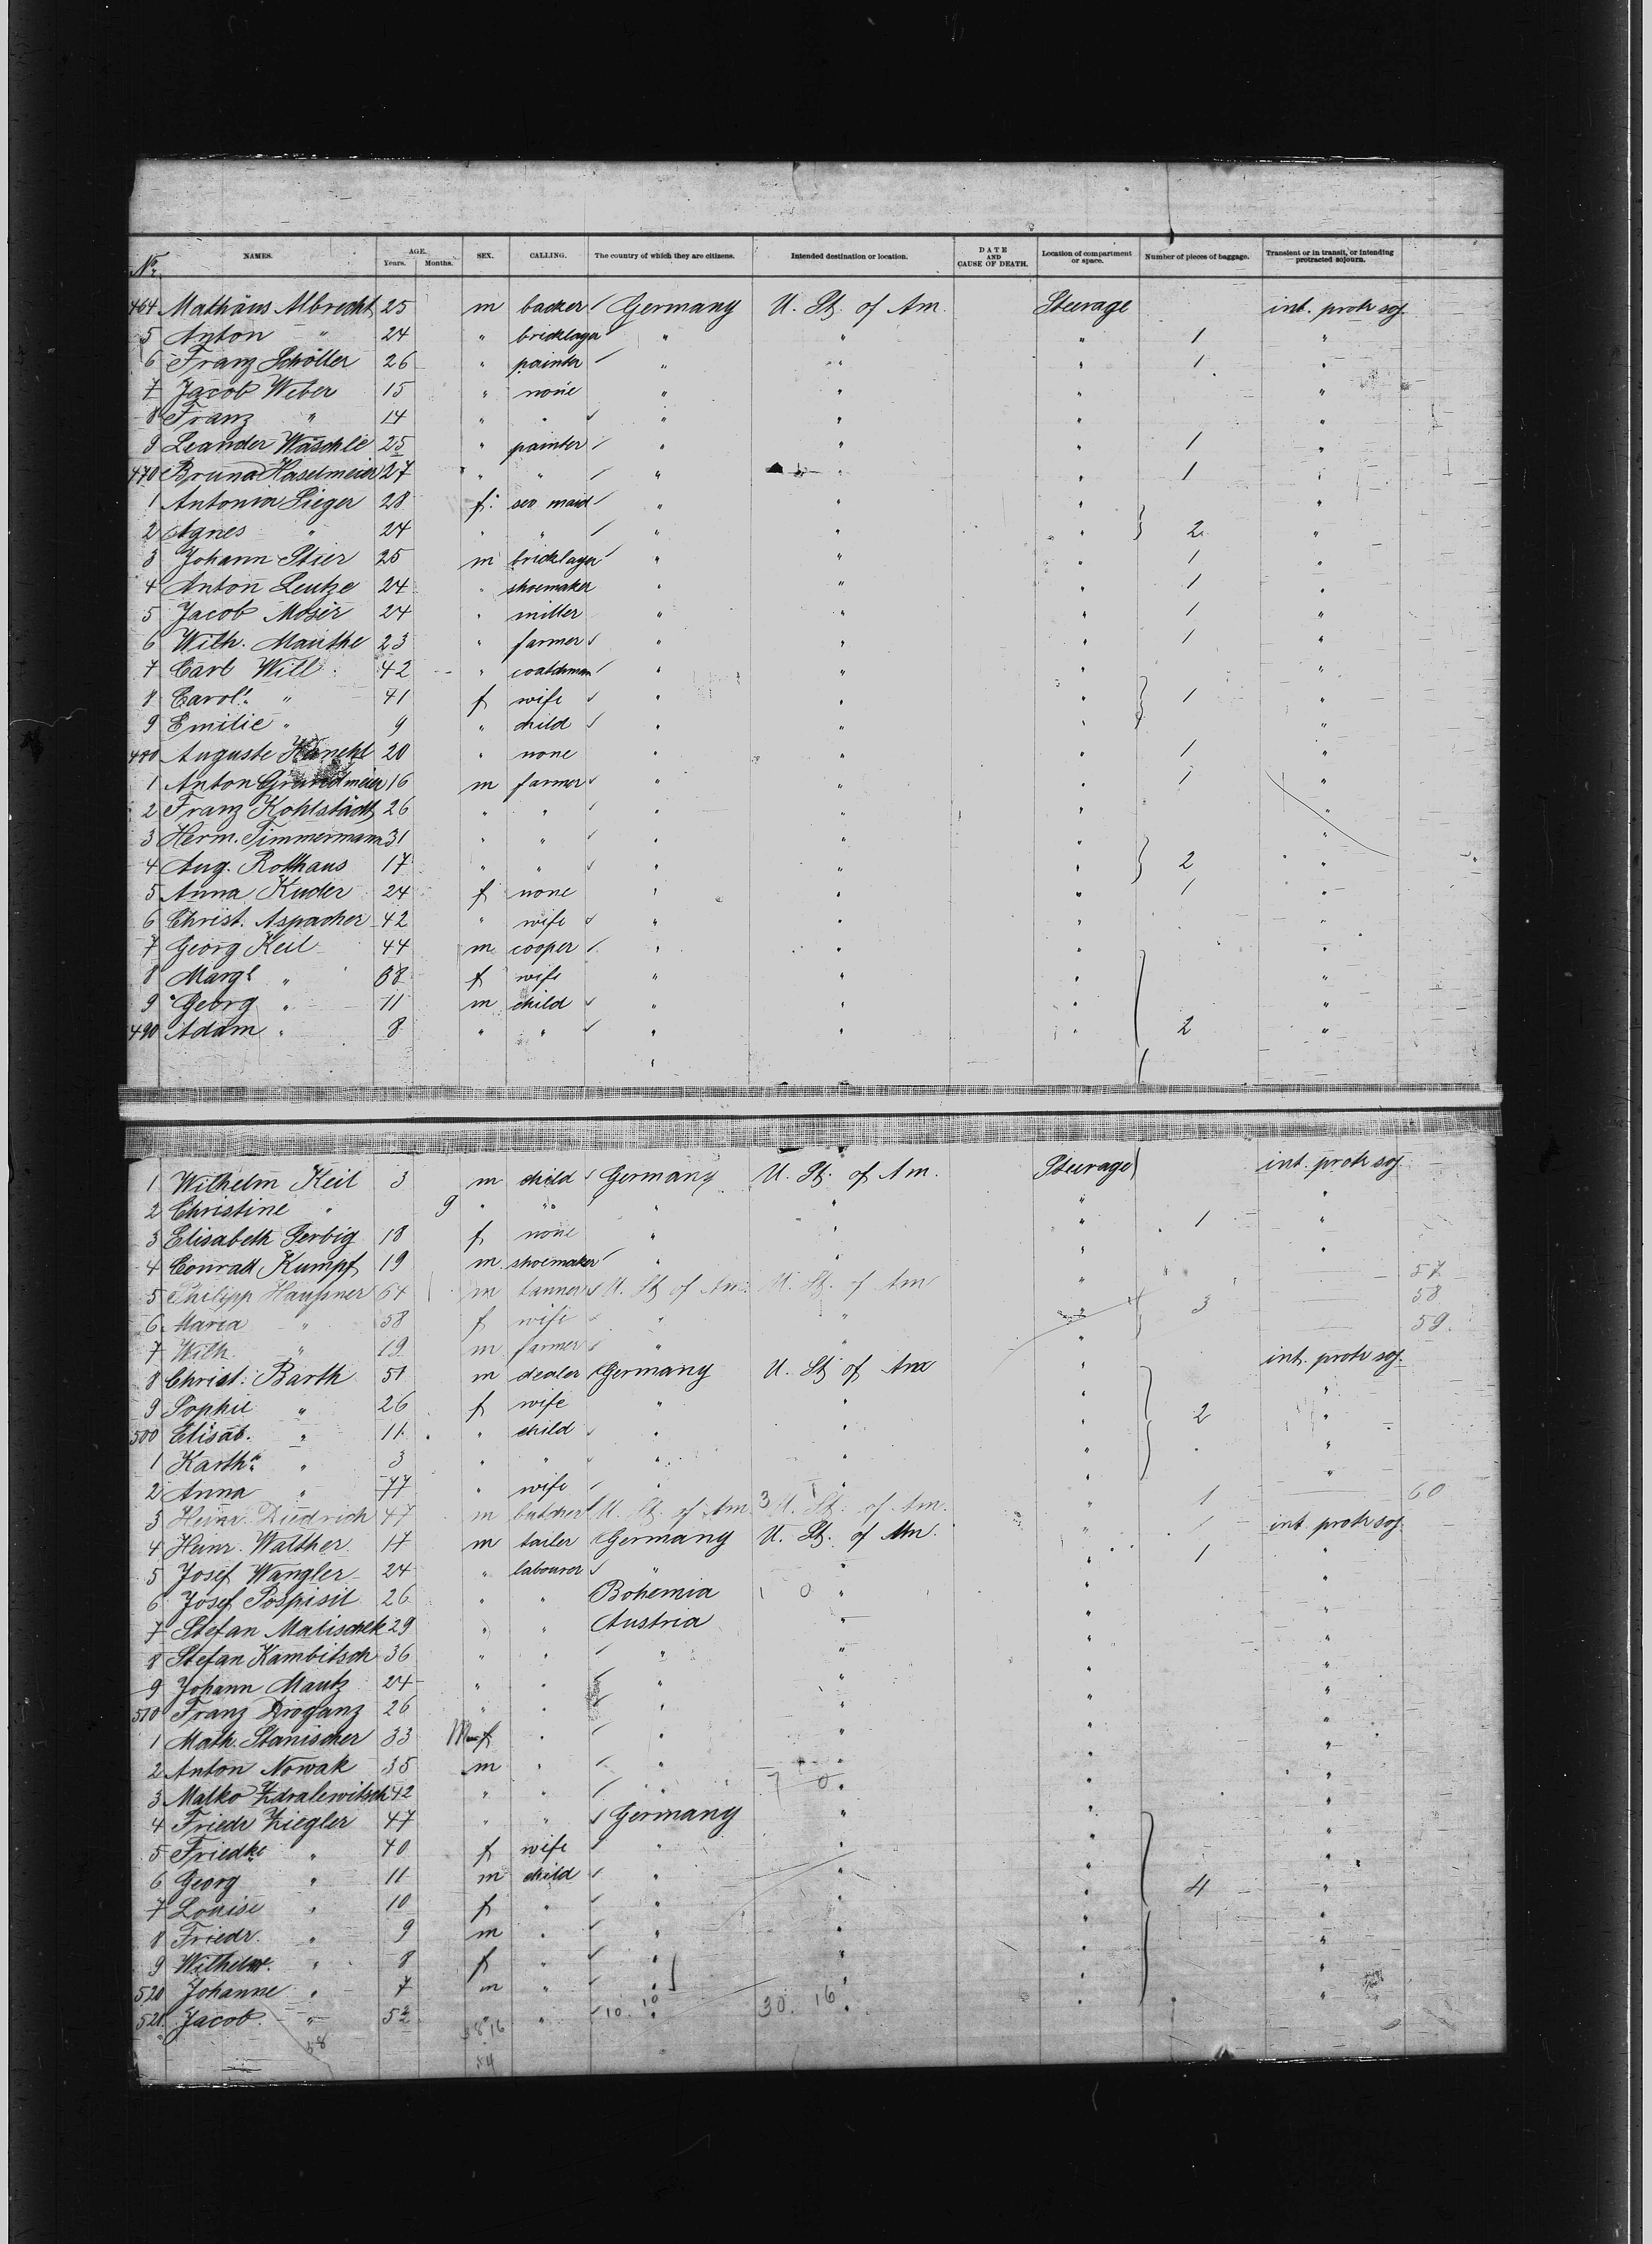 No. NAMES. AGE. Years. Months. SEX. CALLING. The country of which they are citizens. Intended destination or location. DATE AND CAUSE OF DEATH. Location of compartment or space. Number of pieces of baggage. Transient or in transit, or intending protracted sojourn.
464 Mathäus Albrecht 25 m backer Germany U. St. of Am. Steerage int. protr soj.
5 Anton " 24 " bricklayer " " " 1 "
6 Franz Schöller 26 " painter " " " 1 "
7 Jacob Weber 15 " none " " " "
8 Franz " 14 " " " " " "
9 Leander Wäschle 25 " painter " " " 1 "
470 Bruno Haselmeier 27 " " " " " 1 "
1 Antonia Sieger 28 f. ser. maid " " " "
2 Agnes " 24 " " " " " 2 "
3 Johann Stier 25 m bricklayer " " " 1 "
4 Anton Leutze 24 " shoemaker " " " 1 "
5 Jacob Moser 24 " miller " " " 1 "
6 Wilh. Mauthe 23 " farmer " " " 1 "
7 Carl Will 42 " coatchman " " " "
8 Carol. " 41 f wife " " " 1 "
9 Emilie " 9 " child " " " "
480 Auguste 20 " none " " " 1 "
1 Anton Grundmeier 16 m farmer " " " 1 "
2 Franz Kohlstädt 26 " " " " " "
3 Herm. Timmermann 31 " " " " " "
4 Aug. Rothaus 17 " " " " " 2 "
5 Anna Kuder 24 f none " " " 1 "
6 Christ. Aspacher 42 " wife " " " "
7 Georg Keil 44 m cooper " " " "
8 Margt " 38 f wife " " " "
9 Georg " 11 m child " " " "
490 Adam " 8 " " " " " 2 "
1 Wilhelm Keil 3 m child Germany U. St. of Am. Steerage int. protr soj.
2 Christine " 9 " " " " " "
3 Elisabeth Gerbig 18 f none " " " 1 "
4 Conrad Kumpf 19 m shoemaker " " " "
5 Philipp Haußner 64 m tanner U. St. of Am. U. St. of Am " 57
6 Maria " 58 f wife " " " 3 58
7 Wilh. " 19 m farmer " " " 59.
8 Christ. Barth 51 m dealer Germany U. St. of Am " int. protr soj.
9 Sophie " 26 f wife " " " "
500 Elisab. " 11 " child " " " 2 "
1 Karth. " 3 " " " " " "
2 Anna " 77 " wife " " " "
3 Heinr. Diedrich 47 m butcher U. St. of Am 3 U. St. of Am. " 1 60
4 Heinr. Walther 17 m tailer Germany U. St. of Am. " int. protr soj.
5 Josef Wangler 24 " labourer " " " 1 "
6 Josef Pospisil 26 " " Bohemia 0 " " "
7 Stefan Malischek 29 " " Austria " " "
8 Stefan Kambitsch 36 " " " " " "
9 Johann Mautz 24 " " " " " "
510 Franz Droganz 26 " " " " " "
1 Math. Stanischer 33 " " " " "
2 Anton Nowak 35 m " " " " "
3 Malko Zdralewitsch 42 " " " 7 0 " " "
4 Friedr Ziegler 47 " " Germany " " "
5 Friedke " 40 f wife " " " "
6 Georg " 11 m child " " " "
7 Louise " 10 f " " " " 4 "
8 Friedr. " 9 m " " " " "
9 Wilhelm. " 8 f " " " " "
520 Johanne " 7 m " " " " "
521. Jacob " " 10. 10 30. 16 " " "
58
54